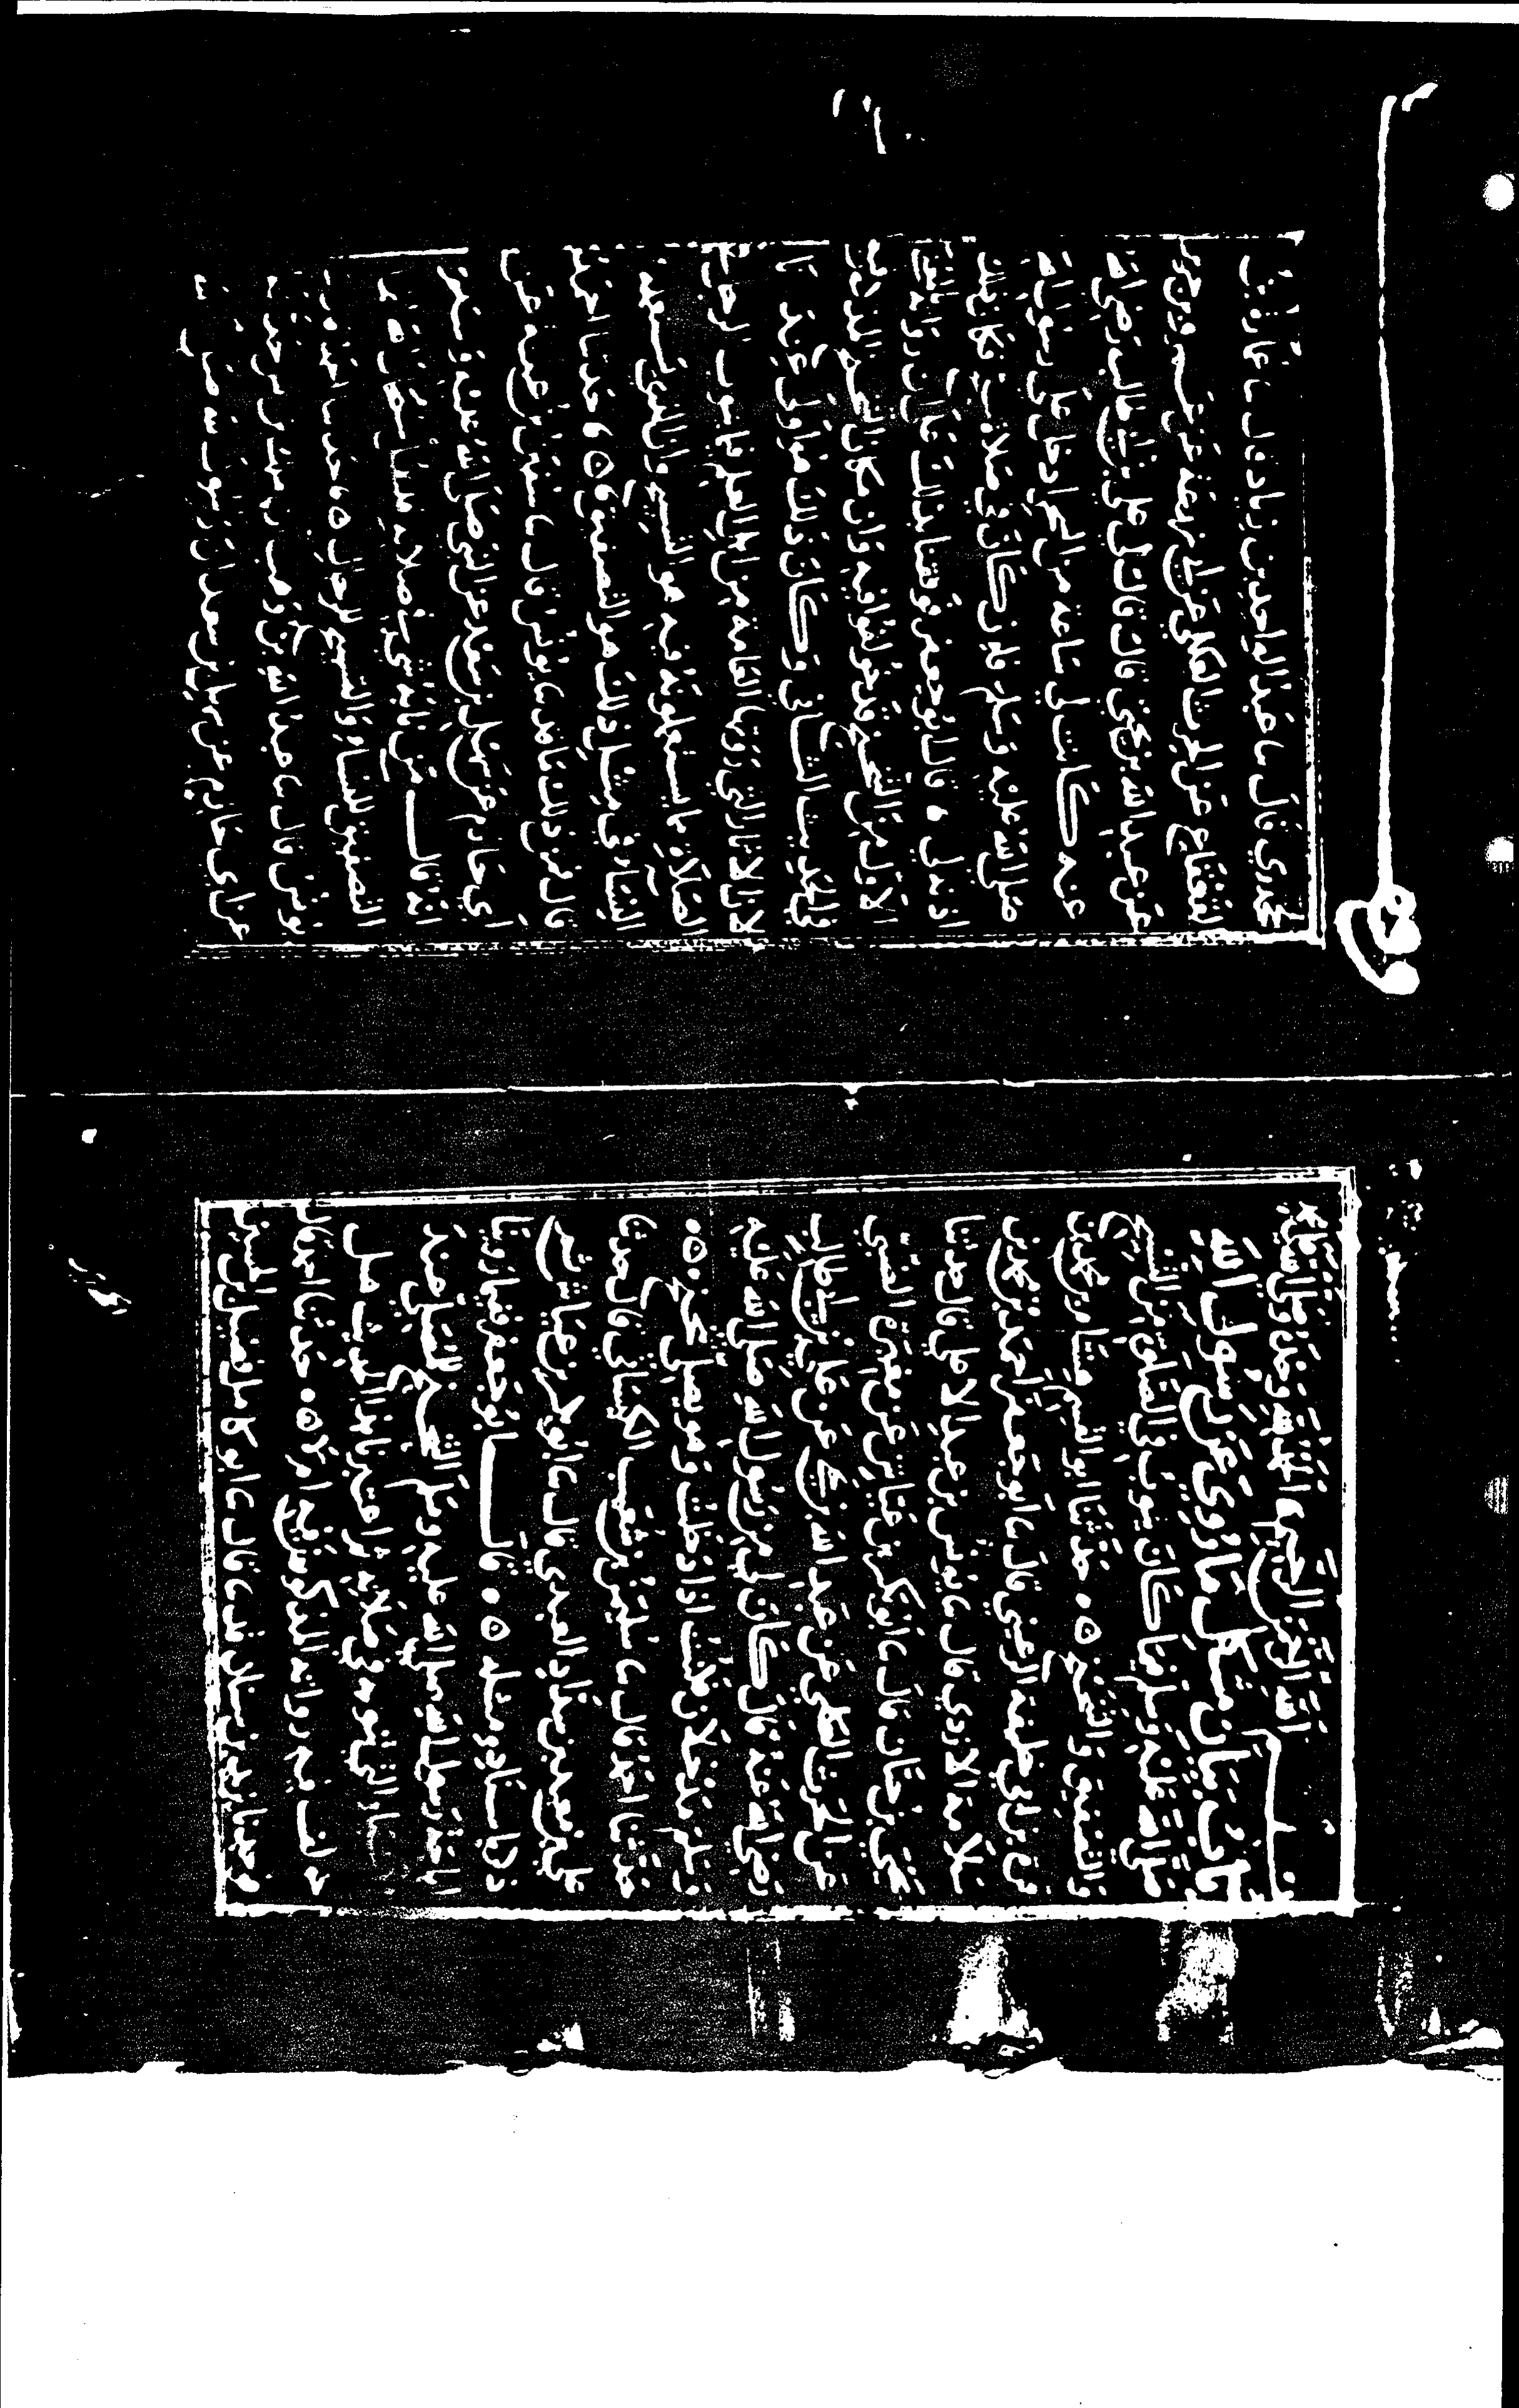 بسم الله الرحمن الرحيم اللهم صل على
باب بيان مشكل ما روي عن رسول الله
صلى الله عليه وسلم فيما كان ينوب في الصلوة من التسبيح
والتصفيق والتنحنح ه حدثنا ابو القسم هشام بن محمد بن
قرة بن ابي خليفة الرعيني قال نا ابو جعفر احمد بن محمد بن
سلامة الازدي قال نا يونس بن عبد الاعلى قال حدثنا
يحيى بن حسان قال نا ابو بكر بن عياش عن مغيرة الضبي
عن الحرث العكلي عن عبد الله بن نجي عن علي بن ابي طالب
رضي الله عنه قال كان لي من رسول الله صلى الله عليه
وسلم مدخلان فكنت اذا دخلت وهو يصلي تنحنح ه
حدثنا احمد قال نا سليمن بن شعيب الكيساني قال حدثنا
علي بن معبد بن شداد العبدي قال نا ابو بكر بن عياش ثم
ذكر باسناده مثله ه قال ابو جعفر ففيما روينا
اباحة رسول الله صلى الله عليه وسلم التنحنح للمصلي عند
الذي ينوبه في صلاته ثم اعتبرنا هذا الحديث هل
خولف فيه رواته المذكورون فيه ام لا ه حدثنا احمد قال
فوجدنا قد نا قال نا ابو كامل فضيل بن الحسين
الجحدري قال نا عبد الواحد بن زياد قال نا عمارة بن
القعقاع عن الحرث العكلي عن ابي زرعة عن عمرو بن جرير
عن عبد الله بن نجي قال قال لي علي بن ابي طالب رضي الله
عنه كانت لي ساعة من السحر ادخل على رسول الله
صلى الله عليه وسلم فان كان في صلاته سبح فكان ذلك
اذنه لي ه قال ابو جعفر فوقفنا بذلك على ان رواته
الاول من التنحنح قد خولفوا فيه وان مكان التنحنح المذكور فيه
في الحديث الثاني وكان ذلك هو اولى عندنا
لان الاثار التي روتها العامة من اهل العلم فيما ينوب الرجل
الصلاة مما يستعملونه فيه هو التسبيح وان الذي تستعمله
النساء في مثل ذلك هو التصفيق ه حدثنا احمد
قال فمن ذلك ما قد نا يونس قال نا سفين بن عيينة عن
ابي حازم عن سهل بن سعد عن النبي صلى الله عليه وسلم
انه قال من نابه شي في صلاته
التصفيق للنساء والتسبيح للرجال ه حدثنا احمد قال نا
يونس قال نا عبد الله بن وهب ان
عن ابي حازم عن سهل بن سعد ان رسول الله صلى